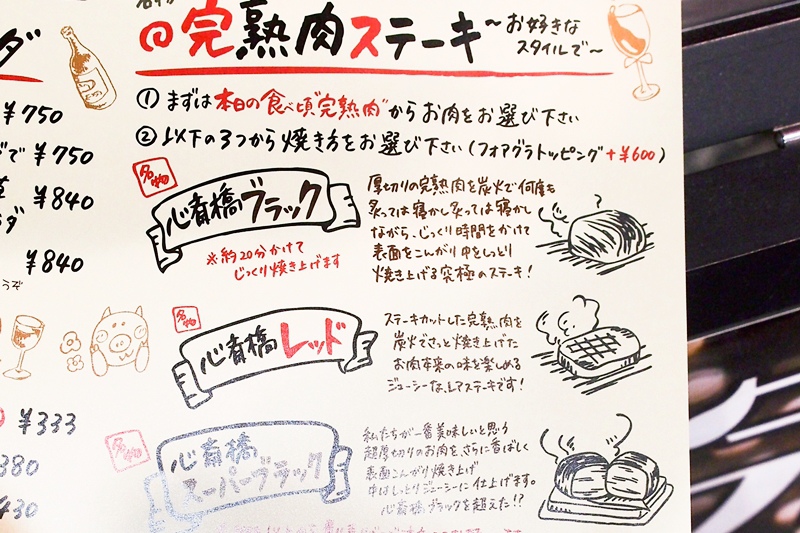 完熟肉ステーキ
～お好きな
スタイルで～
① まずは本日の食べ頃"完熟肉"からお肉をお選び下さい
② 以下の3つから焼き方をお選び下さい(フォアグラトッピング+¥600)
名物
心斎橋ブラック
※約20分かけて
じっくり焼き上げます
厚切りの完熟肉を炭火で何度も
炙っては寝かし炙っては寝かし
ながら、じっくり時間をかけて
表面をこんがり中をしっとり
焼き上げる究極のステーキ!
名物
心斎橋レッド
ステーキカットした完熟肉を
炭火でさっと焼き上げた
お肉本来の味を楽しめる
ジューシーな、レアステーキです!
名物
心斎橋
スーパーブラック
私たちが一番美味しいと思う
超厚切りのお肉を、さらに香ばしく
表面こんがり焼き上げ
中はしっとりジューシーに仕上げます。
心斎橋ブラックを超えた!?
ダ
¥750
で ¥750
¥840
ダ
¥840
うぞ
¥333
380
430